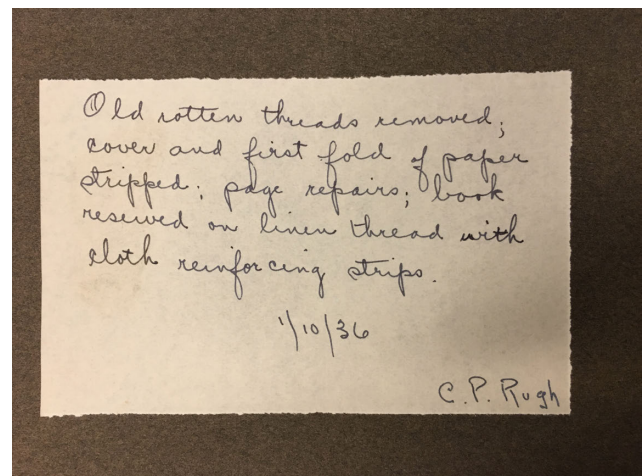 Old rotten threads removed;
cover and first fold of paper
stripped; page repairs; book
resewed on linen thread with
cloth reinforcing strips.
1/10/36
C. P. Rugh